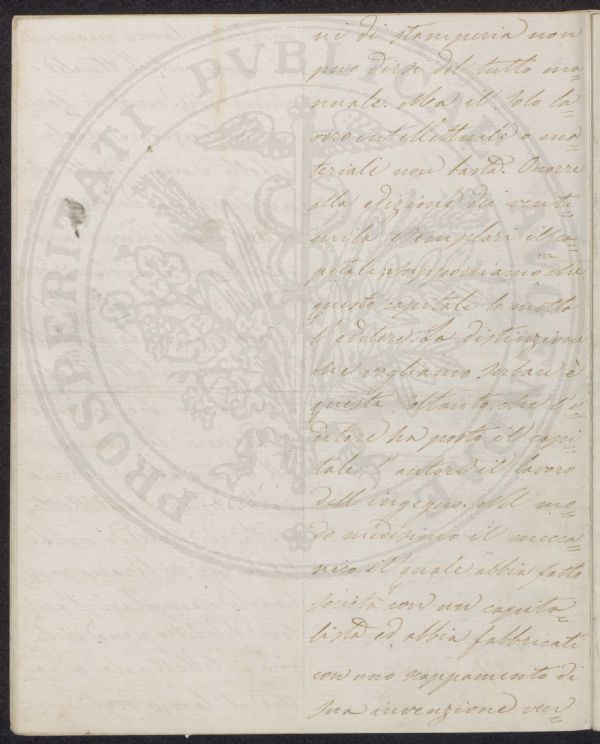 ni di stamperia non
può dirsi del tutto ma=
nuale. Ma il solo la=
voro intellettuale o ma=
teriale non basta. Occorre
alla edizione dei venti=
mila esemplari il ca=
pitale; supponiamo ora che
questo capitale lo metta
l'editore. La distinzione
che vogliamo serbare è
questa soltanto, che l'e=
ditore ha posto il capi=
tale l'autore il lavoro
dell'ingegno. Nel mo=
do medesimo il mecca=
nico il quale abbia fatto
società con un capita=
lista ed abbia fabbricati
con uno scappamento di
sua invenzione ven=
PROSPERITATI PVBLICAE